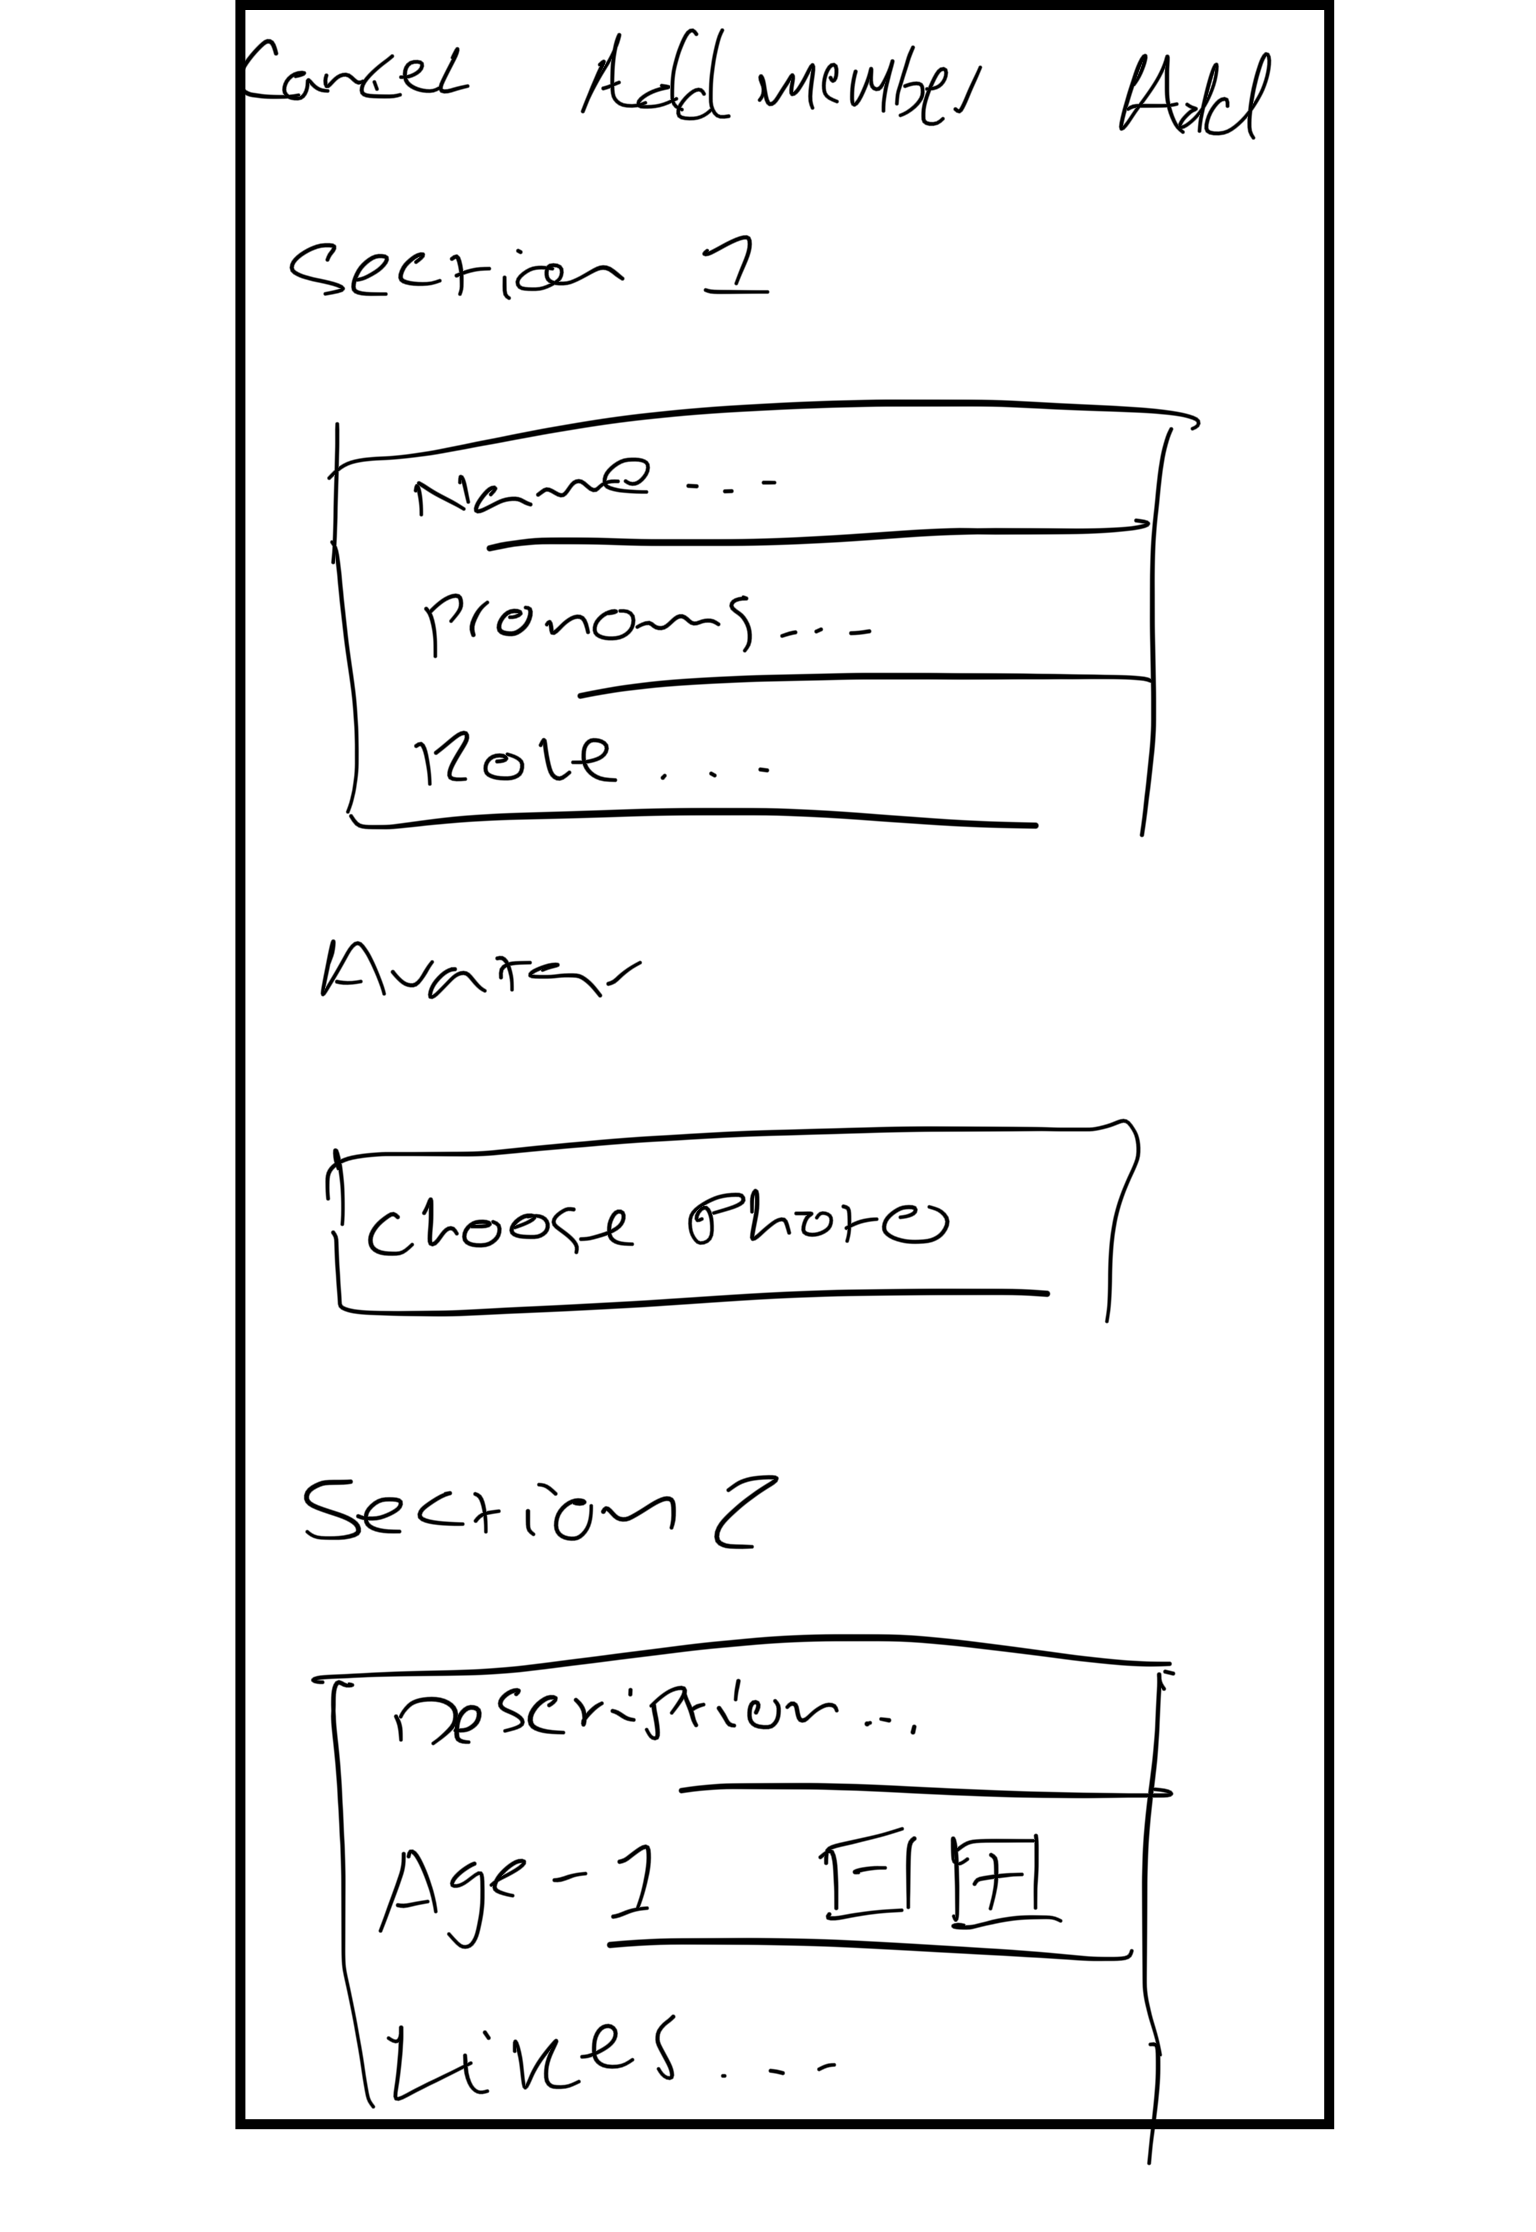 Cancel Add member Add
Section 1
Name...
Pronouns...
Role...
Avatar
Choose Photo
Section 2
Description...
Age - 1 - +
Likes...